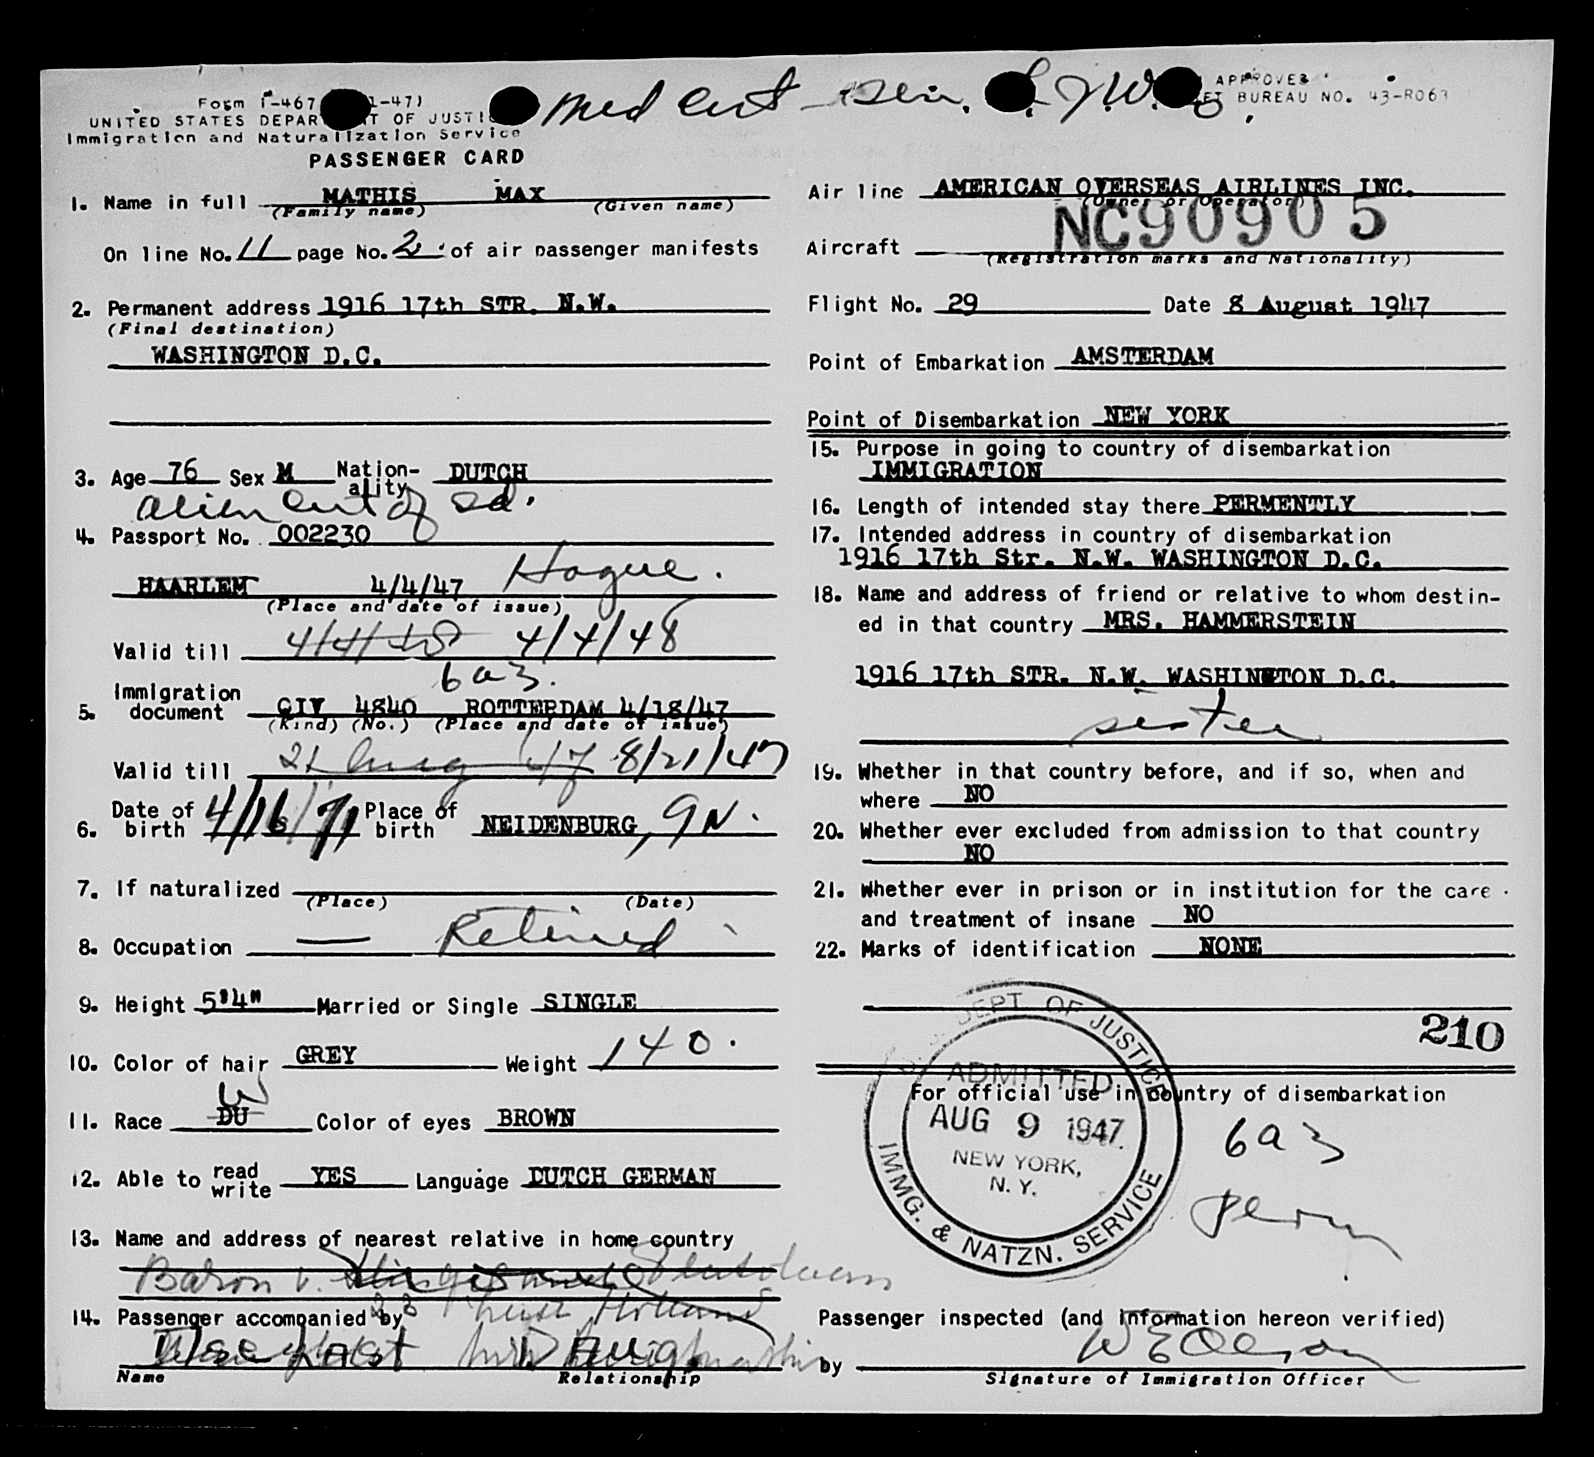 Form I-467 1-47)
UNITED STATES DEPAR T OF JUSTIC
Immigration and Naturalization Service
PASSENGER CARD
med cert sen.
APPROVED
BUREAU NO. 43-R063
1. Name in full MATHIS MAX
(Family name) (Given name)
On line No. 11 page No. 2 of air passenger manifests
2. Permanent address 1916 17th STR. N.W.
(Final destination)
WASHINGTON D.C.
3. Age 76 Sex M Nation-ality DUTCH
alien cert of
4. Passport No. 002230
HAARLEM 4/4/47 Hague.
(Place and date of issue)
Valid till 4/4/48 4/4/48
6a3.
5. Immigration document QIV 4840 ROTTERDAM 4/18/47
(Kind) (No.) (Place and date of issue)
Valid till 21 Aug 47 8/21/47
6. Date of birth 4/16/71 Place of birth NEIDENBURG, GN.
7. If naturalized
(Place) (Date)
8. Occupation — Retired
9. Height 5'4" Married or Single SINGLE
10. Color of hair GREY Weight 140.
W
11. Race DU Color of eyes BROWN
12. Able to read write YES Language DUTCH GERMAN
13. Name and address of nearest relative in home country
Baron v.
Holland
14. Passenger accompanied by
Name Relationship
Air line AMERICAN OVERSEAS AIRLINES INC.
(Owner or Operator)
Aircraft NC90905
(Registration marks and Nationality)
Flight No. 29 Date 8 August 1947
Point of Embarkation AMSTERDAM
Point of Disembarkation NEW YORK
15. Purpose in going to country of disembarkation
IMMIGRATION
16. Length of intended stay there PERMENTLY
17. Intended address in country of disembarkation
1916 17th Str. N.W. WASHINGTON D.C.
18. Name and address of friend or relative to whom destin-
ed in that country MRS. HAMMERSTEIN
1916 17th STR. N.W. WASHINGTON D.C.
sister
19. Whether in that country before, and if so, when and
where NO
20. Whether ever excluded from admission to that country
NO
21. Whether ever in prison or in institution for the care
and treatment of insane NO
22. Marks of identification NONE
210
For official use in country of disembarkation
DEPT OF JUSTICE
ADMITTED
AUG 9 1947
NEW YORK,
N. Y.
IMMG. & NATZN. SERVICE
6a3
Perm
Passenger inspected (and information hereon verified)
by
Signature of Immigration Officer